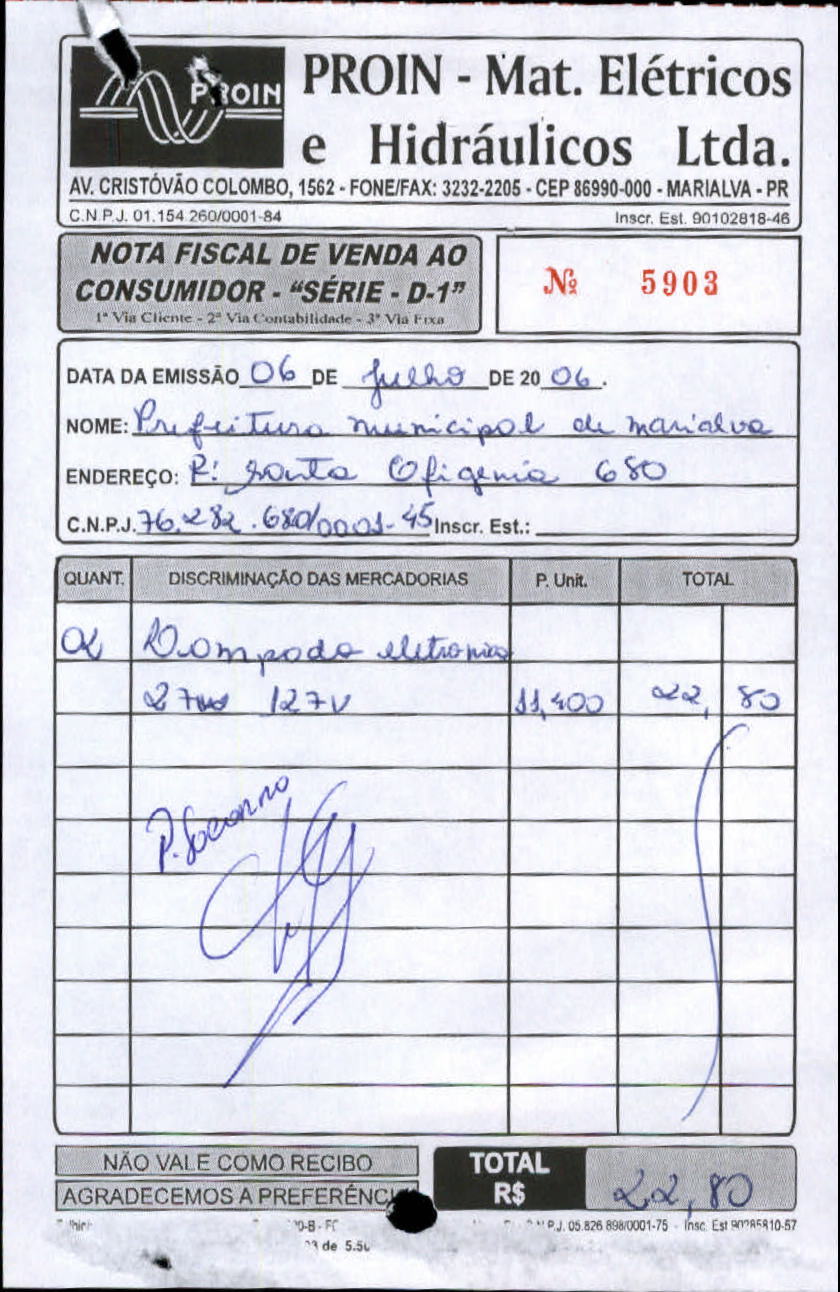 PROIN
PROIN - Mat. Elétricos
e Hidráulicos Ltda.
AV. CRISTÓVÃO COLOMBO, 1562 - FONE/FAX: 3232-2205 - CEP 86990-000 - MARIALVA - PR
C.N.P.J. 01.154.260/0001-84 Inscr. Est. 90102818-46
NOTA FISCAL DE VENDA AO
CONSUMIDOR - "SÉRIE - D-1"
1ª Via Cliente - 2ª Via Contabilidade - 3ª Via Fixa
Nº 5903
DATA DA EMISSÃO 06 DE julho DE 20 06.
NOME: Prefeitura municipal de marialva
ENDEREÇO: R: Santa Efigenia 680
C.N.P.J. 76.282.680/0001-45 Inscr. Est.:
QUANT. DISCRIMINAÇÃO DAS MERCADORIAS P. Unit. TOTAL
02 Lampada eletronica
27w 127V 11,400 22,80
NÃO VALE COMO RECIBO
AGRADECEMOS A PREFERÊNCI
TOTAL
R$ 22,80
P.J. 05.826.898/0001-75 - Insc. Est 90285810-57
de 5.50